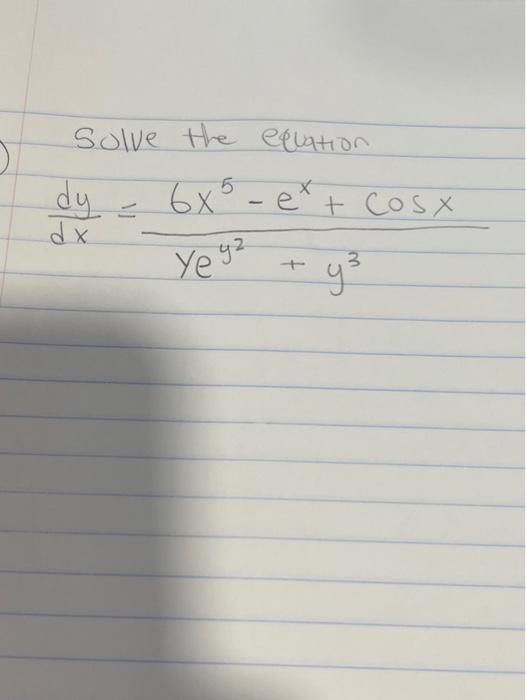 Solve the equation
dy/dx = (6x⁵ - eˣ + cosx)/(ye^(y²) + y³)